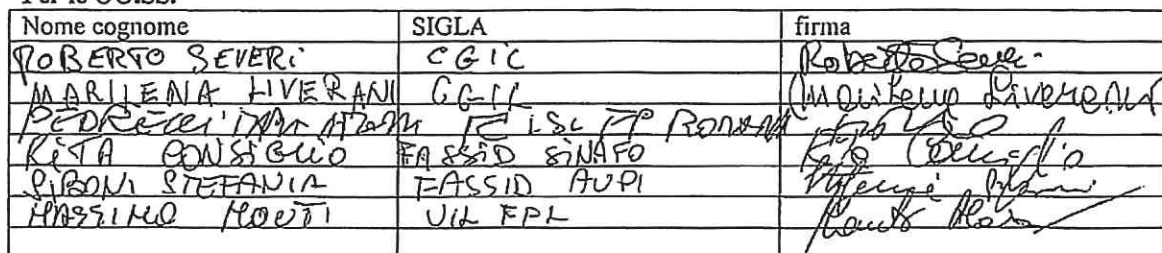 Per le OO.SS.
Nome cognome SIGLA firma
ROBERTO SEVERI CGIL Roberto Severi
MARILENA LIVERANI CGIL Marilena Liverani
CISL FP ROMAGNA
RITA CONSIGLIO FASSID SINAFO Rita Consiglio
SIBONI STEFANIA FASSID AUPI
MASSIMO MONTI UIL FPL